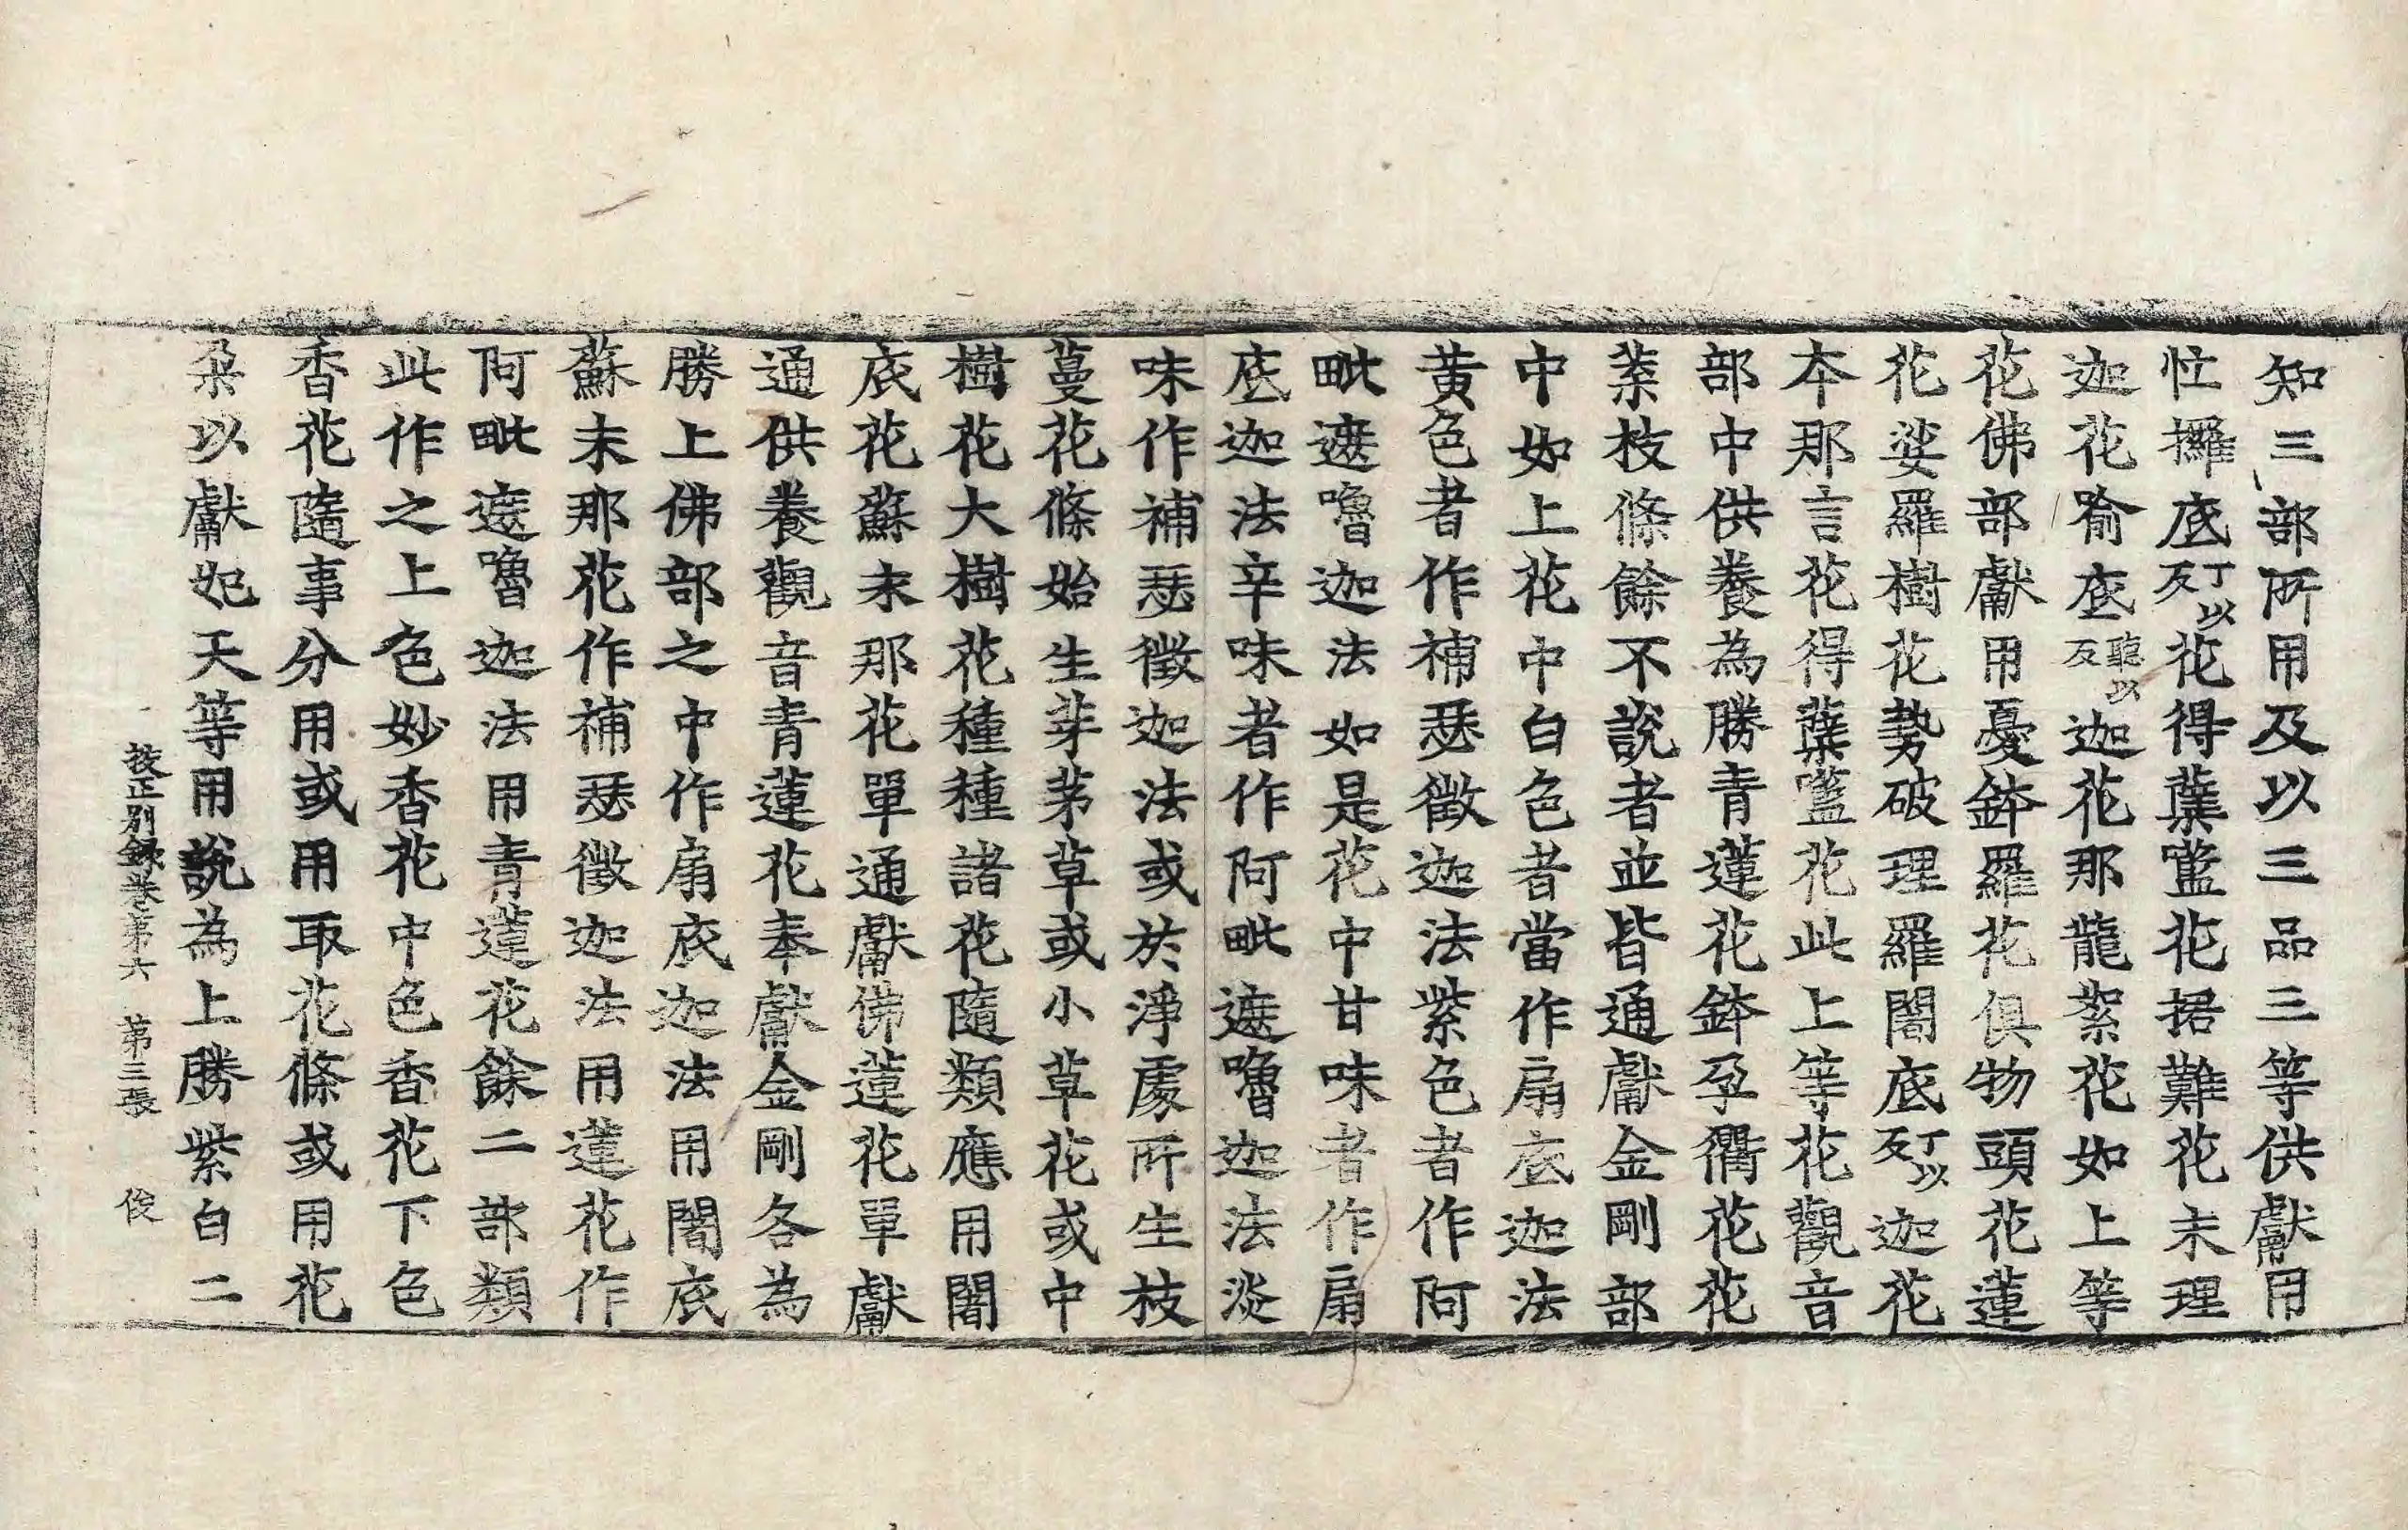 知三部所用及以三品三等供獻用
忙攞底丁以反花得蘗嚂花捃難花末理
迦花喻底聽以反迦花那龍絮花如上等
花佛部獻用憂鉢羅花俱物頭花蓮
花娑羅樹花勢破理羅闍底丁以反迦花
本那言花得蘗嚂花此上等花觀音
部中供養為勝青蓮花鉢孕衢花花
葉枝條餘不說者並皆通獻金剛部
中如上花中白色者當作扇底迦法
黃色者作補瑟徵迦法紫色者作阿
毗遮嚕迦法如是花中甘味者作扇
底迦法辛味者作阿毗遮嚕迦法淡
味作補瑟徵迦法或於淨處所生枝
蔓花條始生芽茅草或小草花或中
樹花大樹花種種諸花隨類應用闍
底花蘇末那花單通獻佛蓮花單獻
通供養觀音青蓮花奉獻金剛各為
勝上佛部之中作扇底迦法用闍底
蘇末那花作補瑟徵迦法用蓮花作
阿毗遮嚕迦法用青蓮花餘二部類
此作之上色妙香花中色香花下色
香花隨事分用或用取花條或用花
朶以獻妃天等用說為上勝紫白二
校正別錄卷第六 第三張 俊